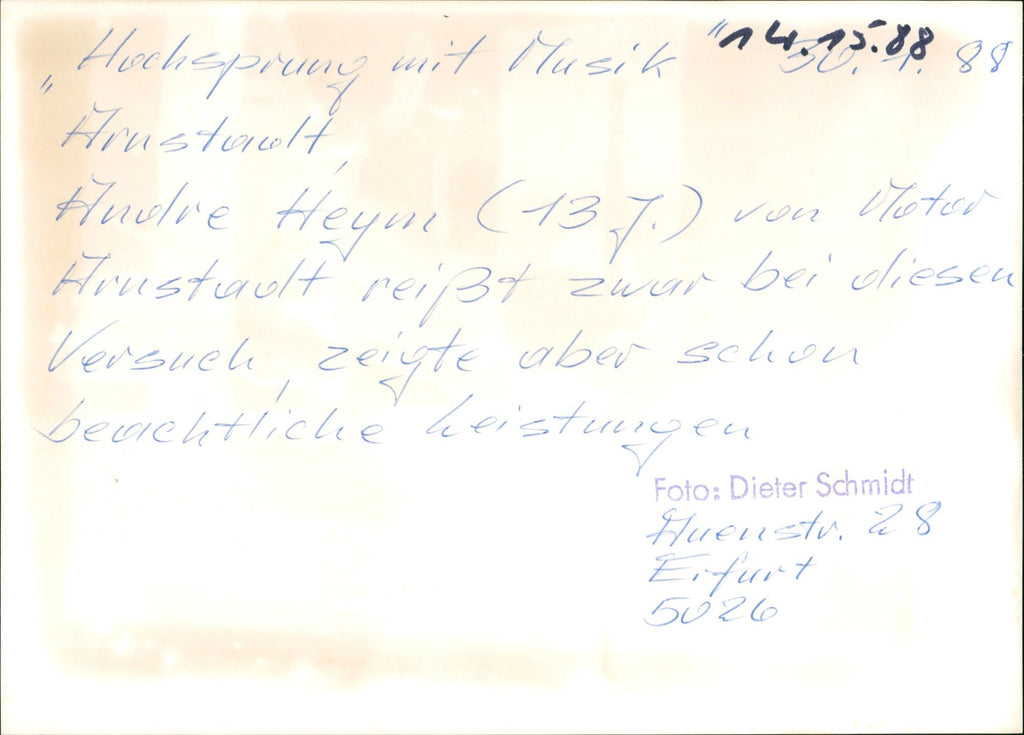 „Hochsprung mit Musik“ 30.1.88
14.15.88
Arnstadt,
Andre Heym (13 J.) von Motor
Arnstadt reißt zwar bei diesen
Versuch, zeigte aber schon
beachtliche Leistungen
Foto: Dieter Schmidt
Auenstr. 28
Erfurt
5026